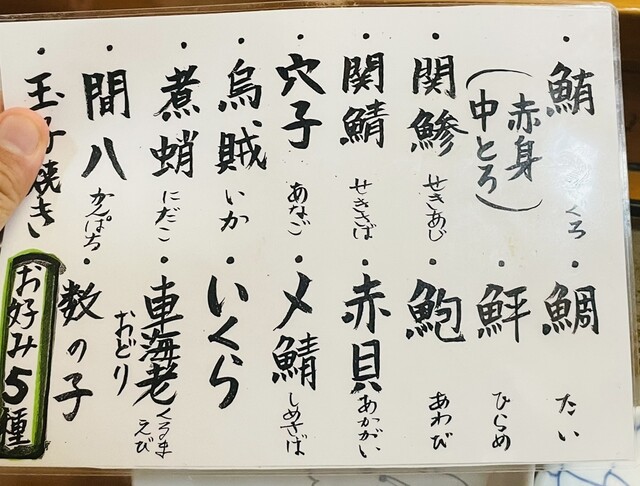 ・鮪 まぐろ
（赤身
中とろ）
・関鯵 せきあじ
・関鯖 せきさば
・穴子 あなご
・烏賊 いか
・煮蛸 にだこ
・間八 かんぱち
・玉子焼き
・鯛 たい
・鮃 ひらめ
・鮑 あわび
・赤貝 あかがい
・〆鯖 しめさば
・いくら
・車海老 くるまえび
おどり
・数の子
お好み5種